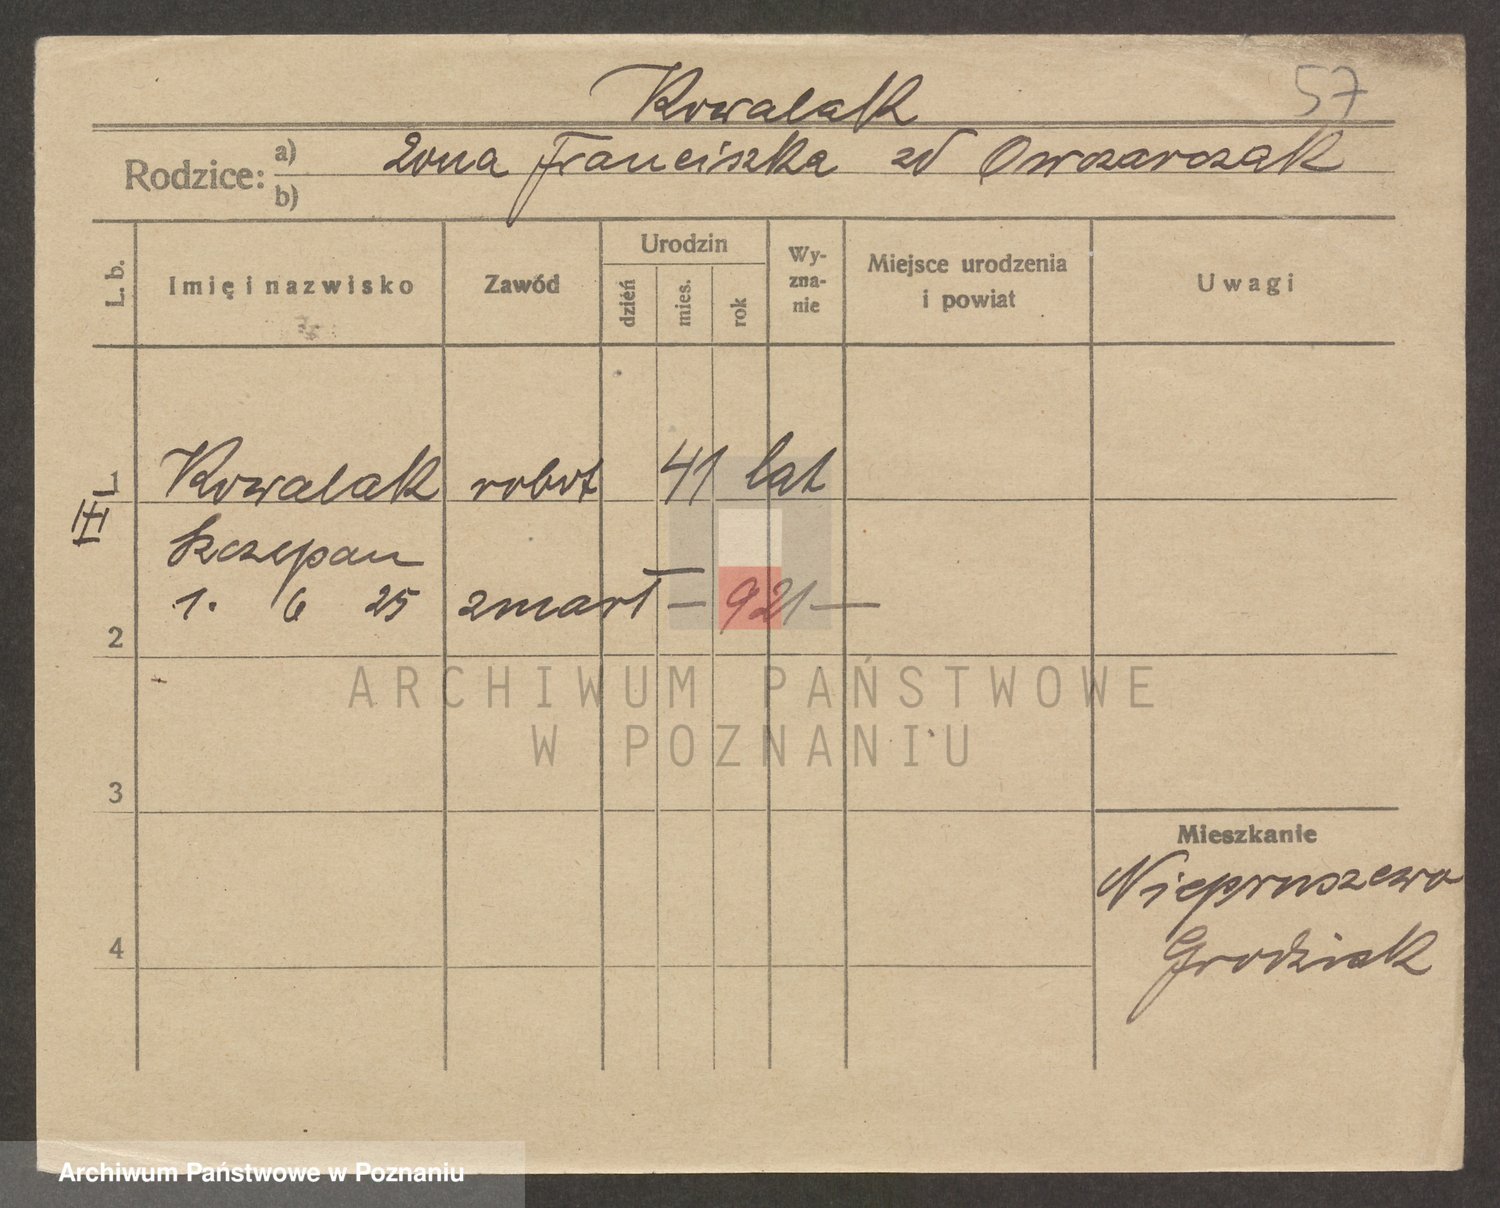 57
Kowalak
Rodzice: a) żona Franciszka zd Owczarczak
b)
L. b.
Imię i nazwisko
Zawód
Urodzin
dzień
mies.
rok
Wy-
zna-
nie
Miejsce urodzenia
i powiat
Uwagi
1 Kowalak robot 41 lat
III
Szczepan
1. 6 25 zmarł – 921 –
2
ARCHIWUM PAŃSTWOWE
W POZNANIU
3
Mieszkanie
Niepruszewo
4
Grodzisk
Archiwum Państwowe w Poznaniu